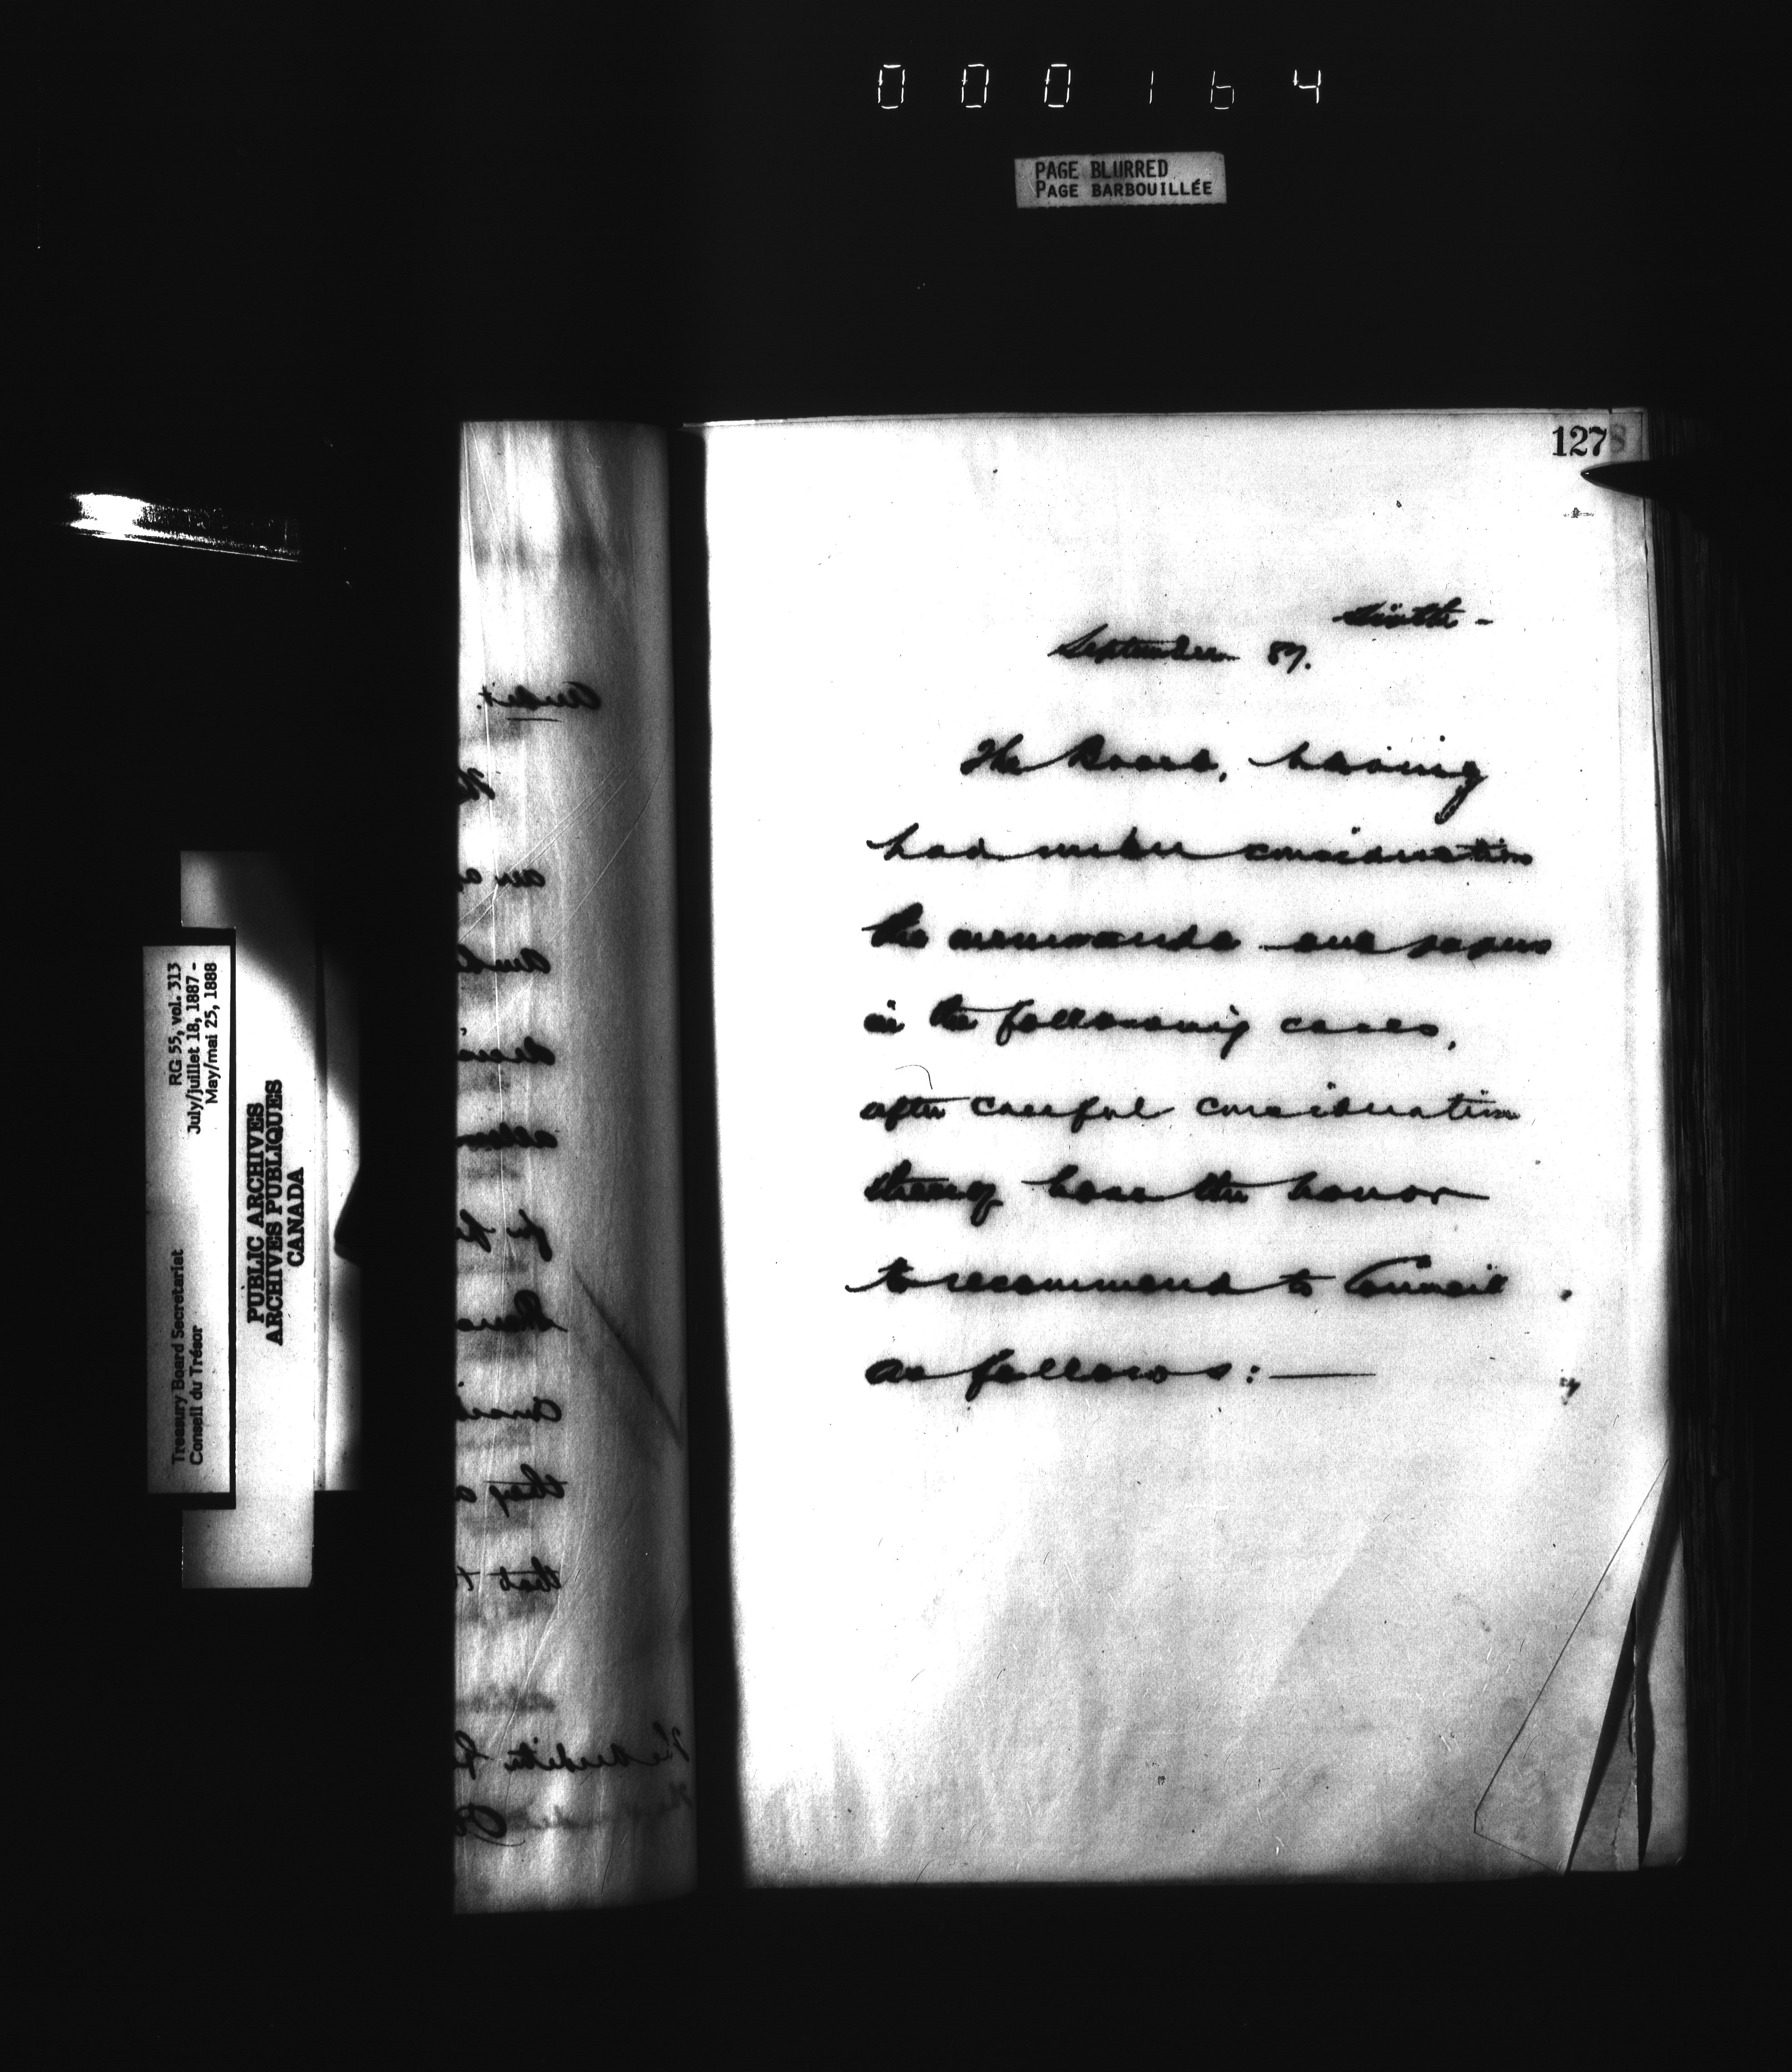 000164
PAGE BLURRED
PAGE BARBOUILLÉE
127
sixth -
September 87.
The Board, having
had under consideration
the memoranda and papers
in the following cases,
after careful consideration
thereof have the honor
to recommend to Council
as follows: —
RG 55, vol. 313
July/juillet 18, 1887 -
May/mai 25, 1888
Treasury Board Secretariat
Conseil du Trésor
PUBLIC ARCHIVES
ARCHIVES PUBLIQUES
CANADA
Audit.
they a
that t
The Auditor G